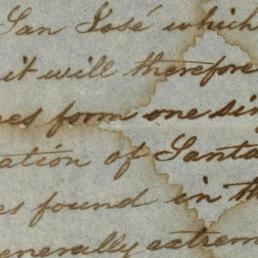 San José which
it will therefore
form one sin
ation of Santa
found in th
generally extrem